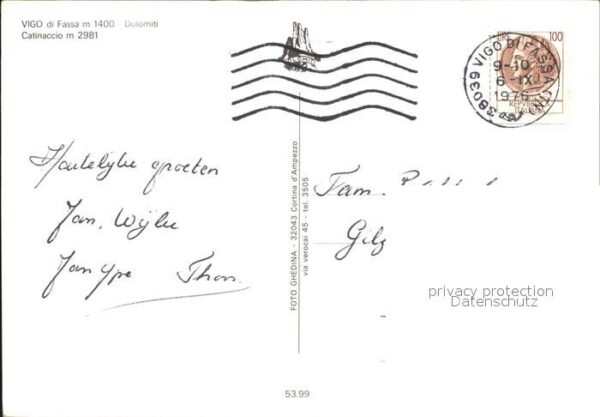 VIGO di Fassa m 1400 Dolomiti
Catinaccio m 2981
LIRE 100
38039 VIGO DI FASSA (TN)
9-10
6-IX
1976
REPVBBLICA
ITALIANA
Hartelijke groeten
Jan, Wijke
Jan Ype Thon.
FOTO GHEDINA - 32043 Cortina d'Ampezzo
via verocai 45 - tel. 3505
Fam.
Gilz
privacy protection
Datenschutz
53.99